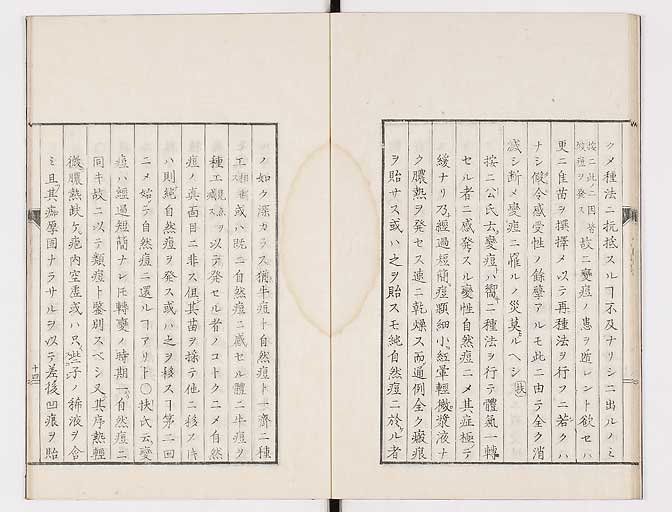 クメ種法ニ抗抵スルヿ不及ナリシニ出ルノミ
按ニ此ノ二因皆
故ニ變痘ノ患ヲ逃レント欲セハ
更ニ佳苗ヲ撰擇メ以テ再種法ヲ行フニ若クハ
ナシ假令感受性ノ餘孽アルモ此ニ由テ全ク消
滅シ断メ變痘ニ罹ルノ災莫ルヘシ
按ニ二公氏云變痘ハ嚮ニ種法ヲ行テ體氣一轉
セル者ニ感発スル變性自然痘ニメ其症極テ
緩ナリ乃經過短簡痘顆細小紅暈輕微漿液ナ
ク膿熱ヲ発セス速ニ乾燥ス而通例全ク瘢痕
ヲ貽サス或ハ之ヲ貽スモ純自然痘ニ於ル者
ノ如ク深カラス猶牛痘ト自然痘ト一齊ニ種
工 或ハ既ニ自然痘ニ感セル體ニ牛痘ヲ
種工 ヲ以テ発セル者ノコトクニメ自然
痘ノ真面目ニ非ス但其苗ヲ採テ他ニ移ス时
ハ則純自然痘ヲ発ス或ハ之ヲ移スヿ第二回
ニメ始テ自然痘ニ還ルヿアリト〇扶氏云變
痘ハ經過短簡ナレ𪜈轉變ノ時期一自然痘ニ
同キ故ニ以テ類痘ト鑒別スベシ又其序熱輕
微膿熱缺ケ疱内空虚或ハ只些子ノ稀液ヲ含
ミ且其痂厚固ナラサルヲ以テ差後凹痕ヲ貽
十四